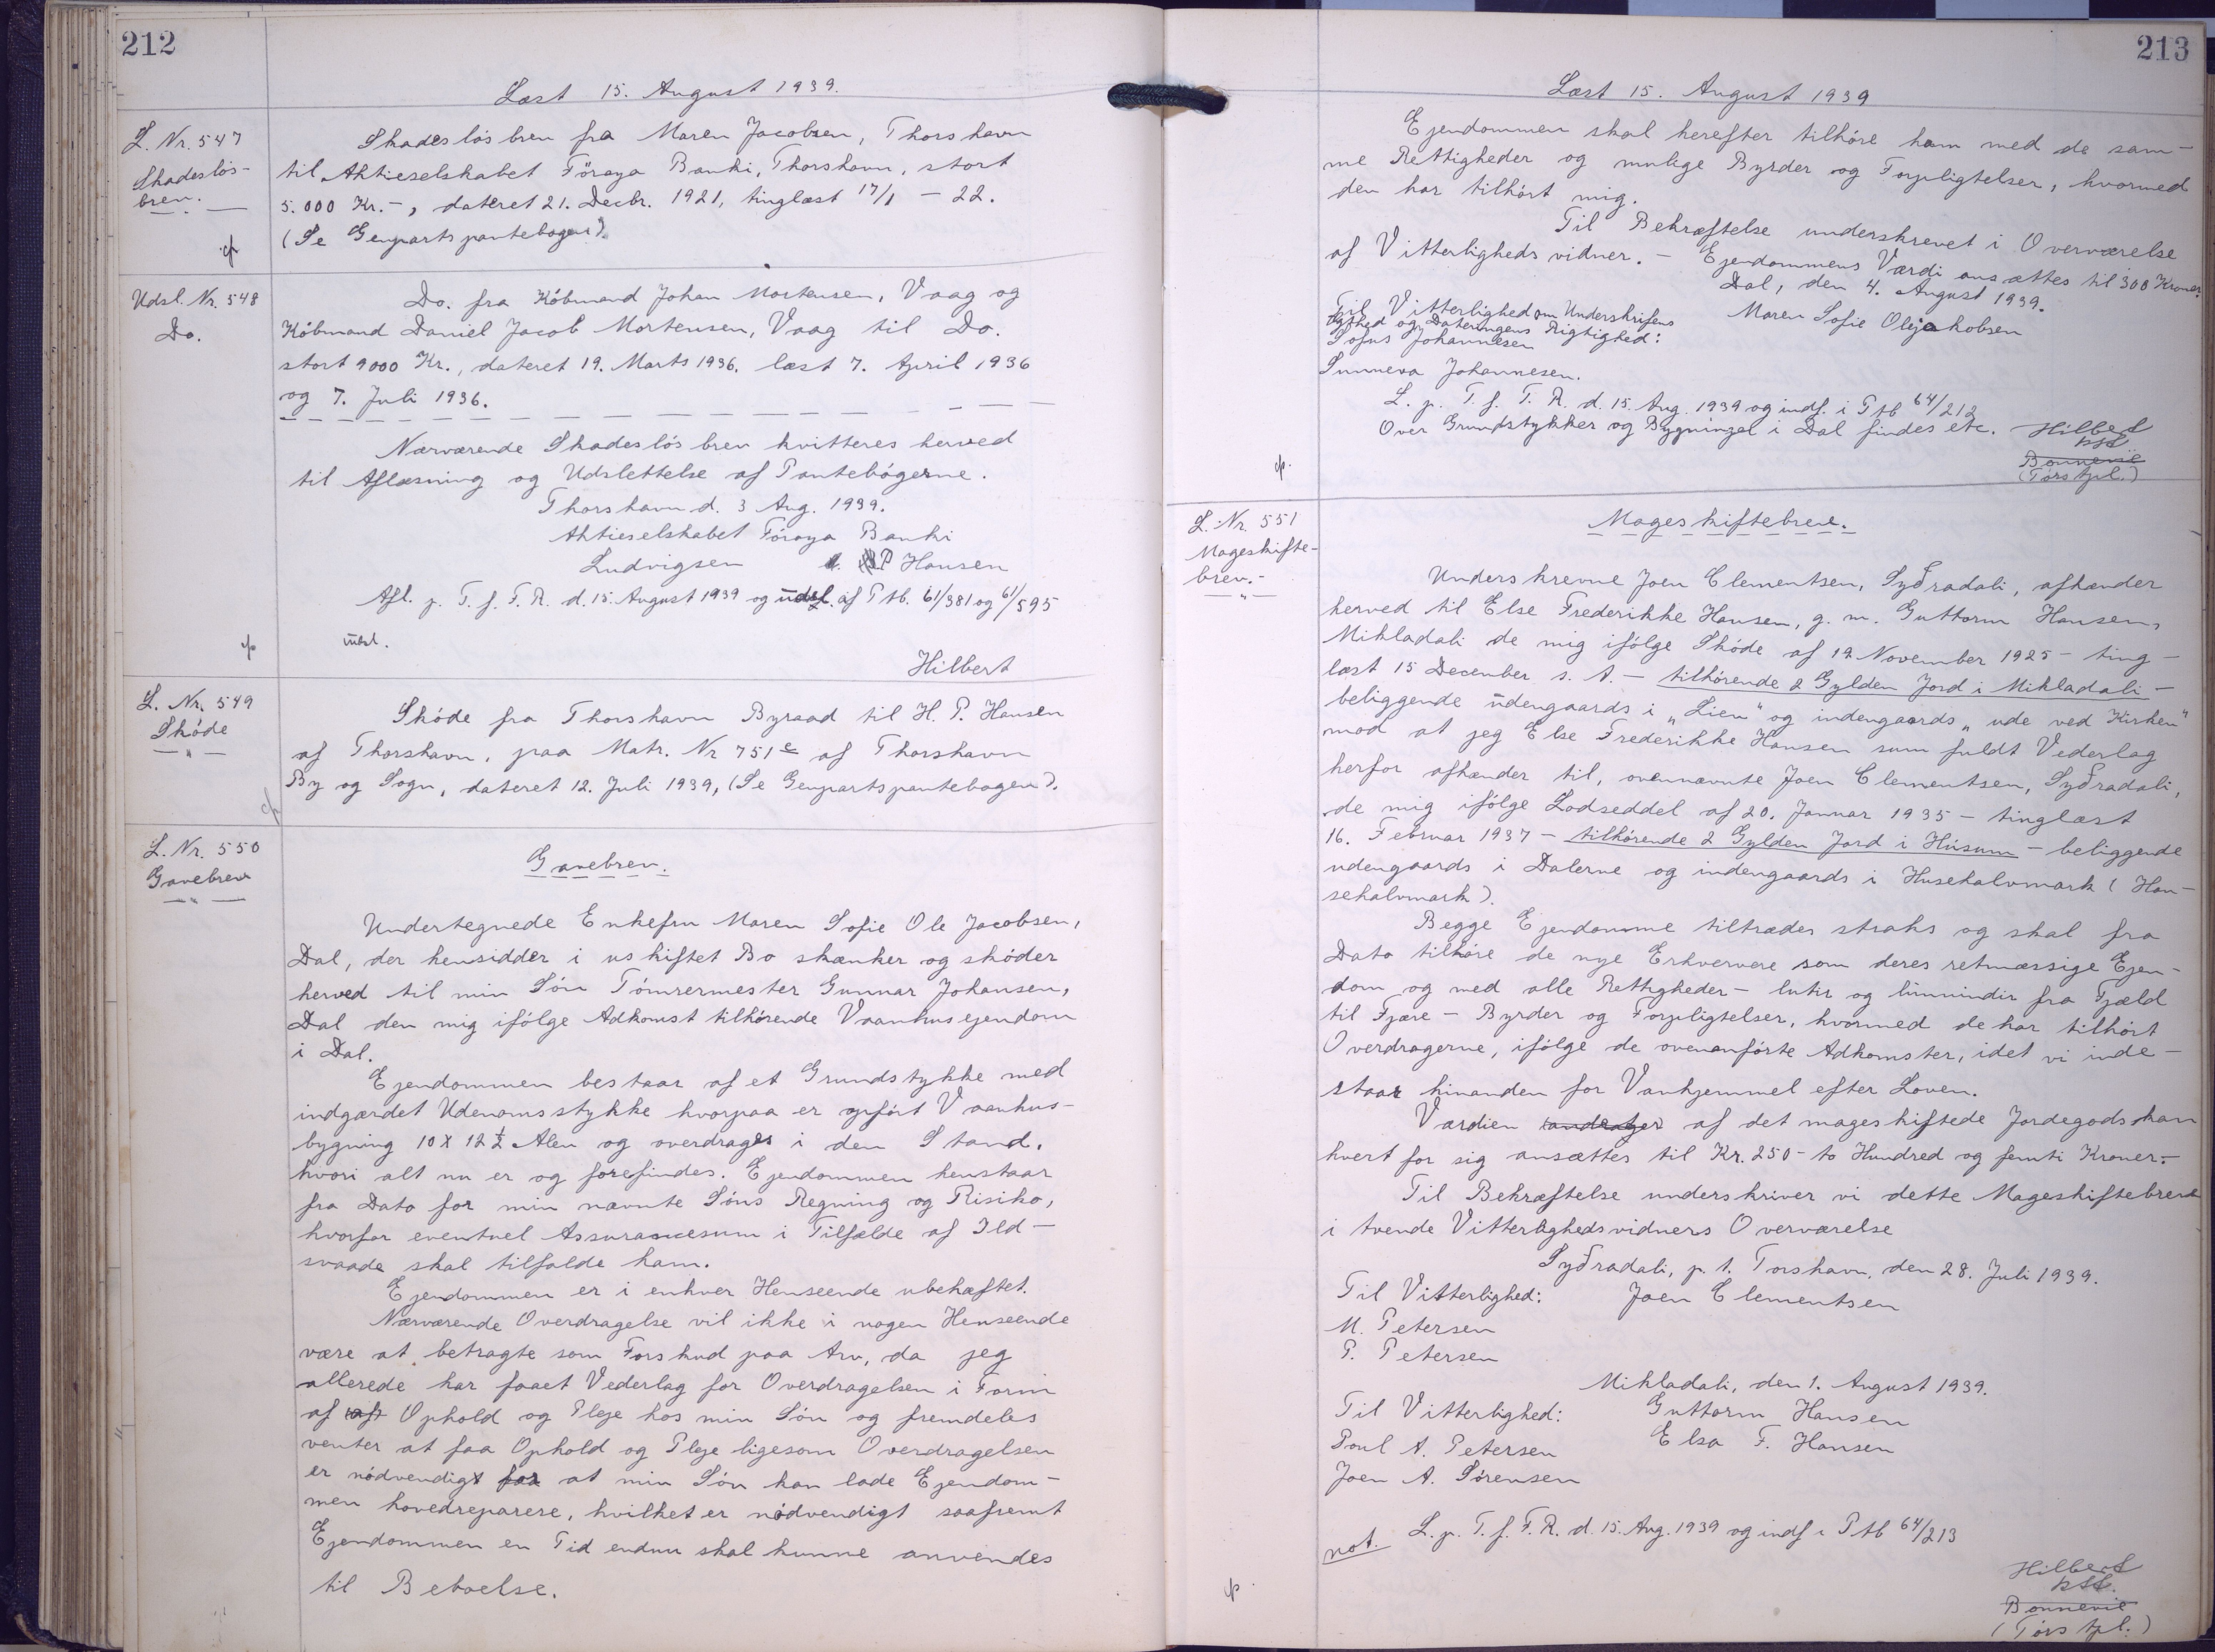 212
Læst 15. August 1939.
L. Nr. 547
Skadesløs-
brev.
Skadesløsbrev fra Maren Jacobsen, Thorshavn
til Aktieselskabet Föroya Banki, Thorshavn, stort
5.000 Kr.-, dateret 21. Decbr. 1921, tinglæst 17/1 - 22.
(Se Genpartspantebogen).
Udsl. Nr. 548
Do.
Do. fra Købmand Johan Mortensen, Vaag og
Købmand Daniel Jacob Mortensen, Vaag til Do.
stort 9000 Kr., dateret 19. Marts 1936. læst 7. April 1936
og 7. Juli 1936.
Nærværende Skadesløsbrev kvitteres herved
til Aflæsning og Udslettelse af Pantebøgerne.
Thorshavn d. 3 Aug. 1939.
Aktieselskabet Föroya Banki
Ludvigsen P Hansen
Afl. p. T. f. F. R. d. 15. August 1939 og udsl. af Ptb. 61/381 og 61/595
Hilbert
L. Nr. 549
Skøde
Skøde fra Thorshavn Byraad til H. P. Hansen
af Thorshavn, paa Matr. Nr 751e af Thorshavn
By og Sogn, dateret 12. Juli 1939, (Se Genpartspantebogen).
L. Nr. 550
Gavebrev
Gavebrev.
Undertegnede Enkefru Maren Sofie Ole Jacobsen,
Dal, der hensidder i uskiftet Bo skænker og skøder
herved til min Søn Tømrermester Gunnar Johansen,
Dal den mig ifølge Adkomst tilhørende Vaanhusejendom
i Dal.
Ejendommen bestaar af et Grundstykke med
indgærdet Udenomsstykke hvorpaa er opført Vaanhus-
bygning 10 X 12½ Alen og overdrages i den Stand,
hvori alt nu er og forefindes. Ejendommen henstaar
fra Dato for min nævnte Søns Regning og Risiko,
hvorfor eventuel Assurancesum i Tilfælde af Ild-
svaade skal tilfalde ham.
Ejendommen er i enhver Henseende ubehæftet.
Nærværende Overdragelse vil ikke i nogen Henseende
være at betragte som Forskud paa Arv, da jeg
allerede har faaet Vederlag for Overdragelsen i Form
af Ophold og Pleje hos min Søn og fremdeles
venter at faa Ophold og Pleje ligesom Overdragelsen
er nødvendigt for at min Søn kan lade Ejendom-
men hovedreparere, hvilket er nødvendigt saafremt
Ejendommen en Tid endnu skal kunne anvendes
til Beboelse.
213
Læst 15. August 1939
Ejendommen skal herefter tilhøre ham med de sam-
me Rettigheder og mulige Byrder og Forpligtelser, hvormed
den har tilhørt mig.
Til Bekræftelse underskrevet i Overværelse
af Vitterlighedsvidner. - Ejendommens Værdi ansættes til 300 Kroner.
Dal, den 4. August 1939.
Til Vitterlighed om Underskriftens Maren Sofie Olejakobsen
Ægthed og Dateringens Rigtighed:
Sofus Johannesen
Sunneva Johannesen.
L. p. T. f. F. R. d. 15. Aug. 1939 og indf. i Ptb 64/212
Over Grundstykker og Bygninger i Dal findes etc. Hilbert
kst.
Bonnevie
(Tórs kpl.)
L. Nr. 551
Mageskifte-
brev.-
Mageskiftebrev.
Underskrevne Joen Clementsen, Syðradali, afhænder
herved til Else Frederikke Hansen, g. m. Guttorm Hansen,
Mikladali de mig ifølge Skøde af 12 November 1925 - ting-
læst 15 December s. A. - tilhørende 2 Gylden Jord i Mikladali -
beliggende udengaards i „Lien“ og indengaards „ude ved Kirken“
mod at jeg Else Frederikke Hansen sum fuldt Vederlag
herfor afhænder til, ovennævnte Joen Clementsen, Syðradali,
de mig ifølge Lodseddel af 20. Januar 1935 - tinglæst
16. Februar 1937 - tilhørende 2 Gylden Jord i Húsum - beliggende
udengaards i Dalerne og indengaards i Husehalvmark (Hou-
sehalvmark).
Begge Ejendomme tiltrædes straks og skal fra
Dato tilhøre de nye Erhververe som deres retmæssige Ejen-
dom og med alle Rettigheder - lutir og lunnindir fra Fjæld
til Fjære - Byrder og Forpligtelser, hvormed de har tilhørt
Overdragerne, ifølge de ovenanførte Adkomster, idet vi inde-
staar hinanden for Vanhjemmel efter Loven.
Værdien andrager af det mageskiftede Jordegods kan
hvert for sig ansættes til Kr. 250 - to Hundred og femti Kroner.-
Til Bekræftelse underskriver vi dette Mageskiftebrev
i tvende Vitterlighedsvidners Overværelse
Syðradali, p. t. Torshavn, den 28. Juli 1939.
Til Vitterlighed: Joen Clementsen
M. Petersen
P. Petersen
Mikladali, den 1. August 1939.
Til Vitterlighed: Guttorm Hansen
Poul A. Petersen Elsa F. Hansen
Joen A. Sørensen
not. L. p. T. f. F. R. d. 15. Aug. 1939 og indf i Ptb 64/213
Hilbert
kst.
Bonnevie
(Tórs kpl.)